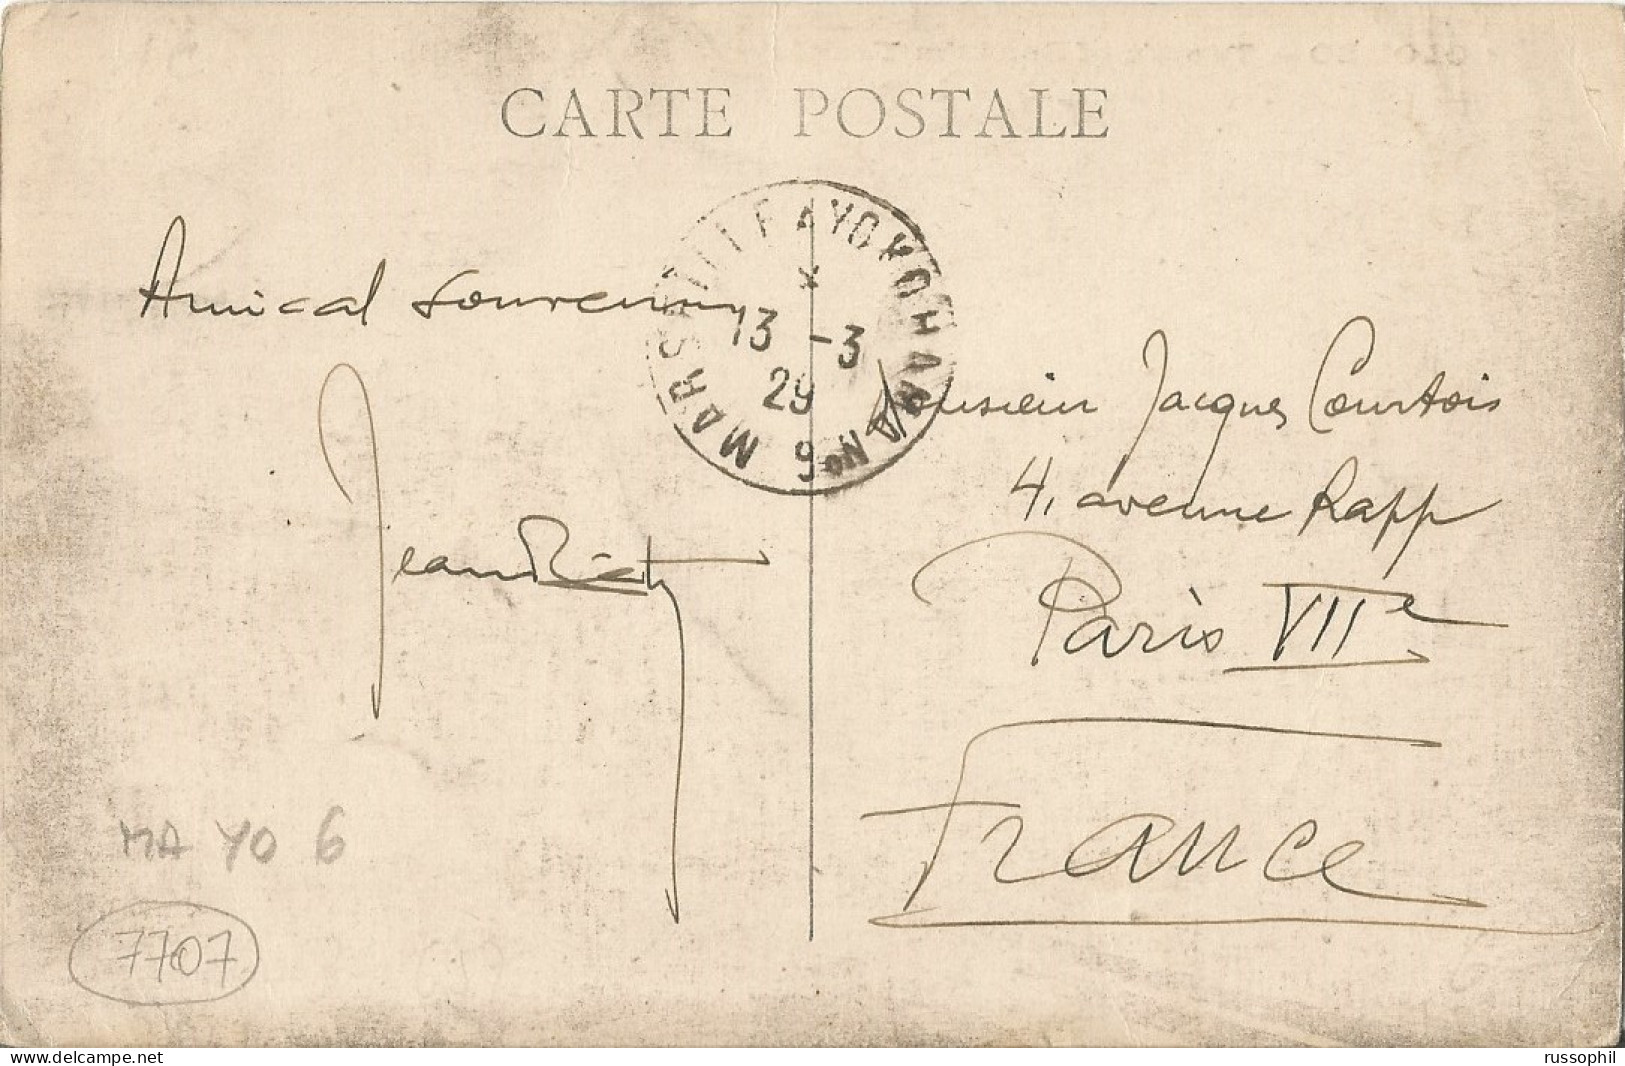 CARTE POSTALE
MARSEILLE A YOKOHAMA No 6
13 -3
29
Amical souvenir
Jean
Monsieur Jacques Courtois
4, avenue Rapp
Paris VIIe
France
MA YO 6
7707
delcampe.net
russophil